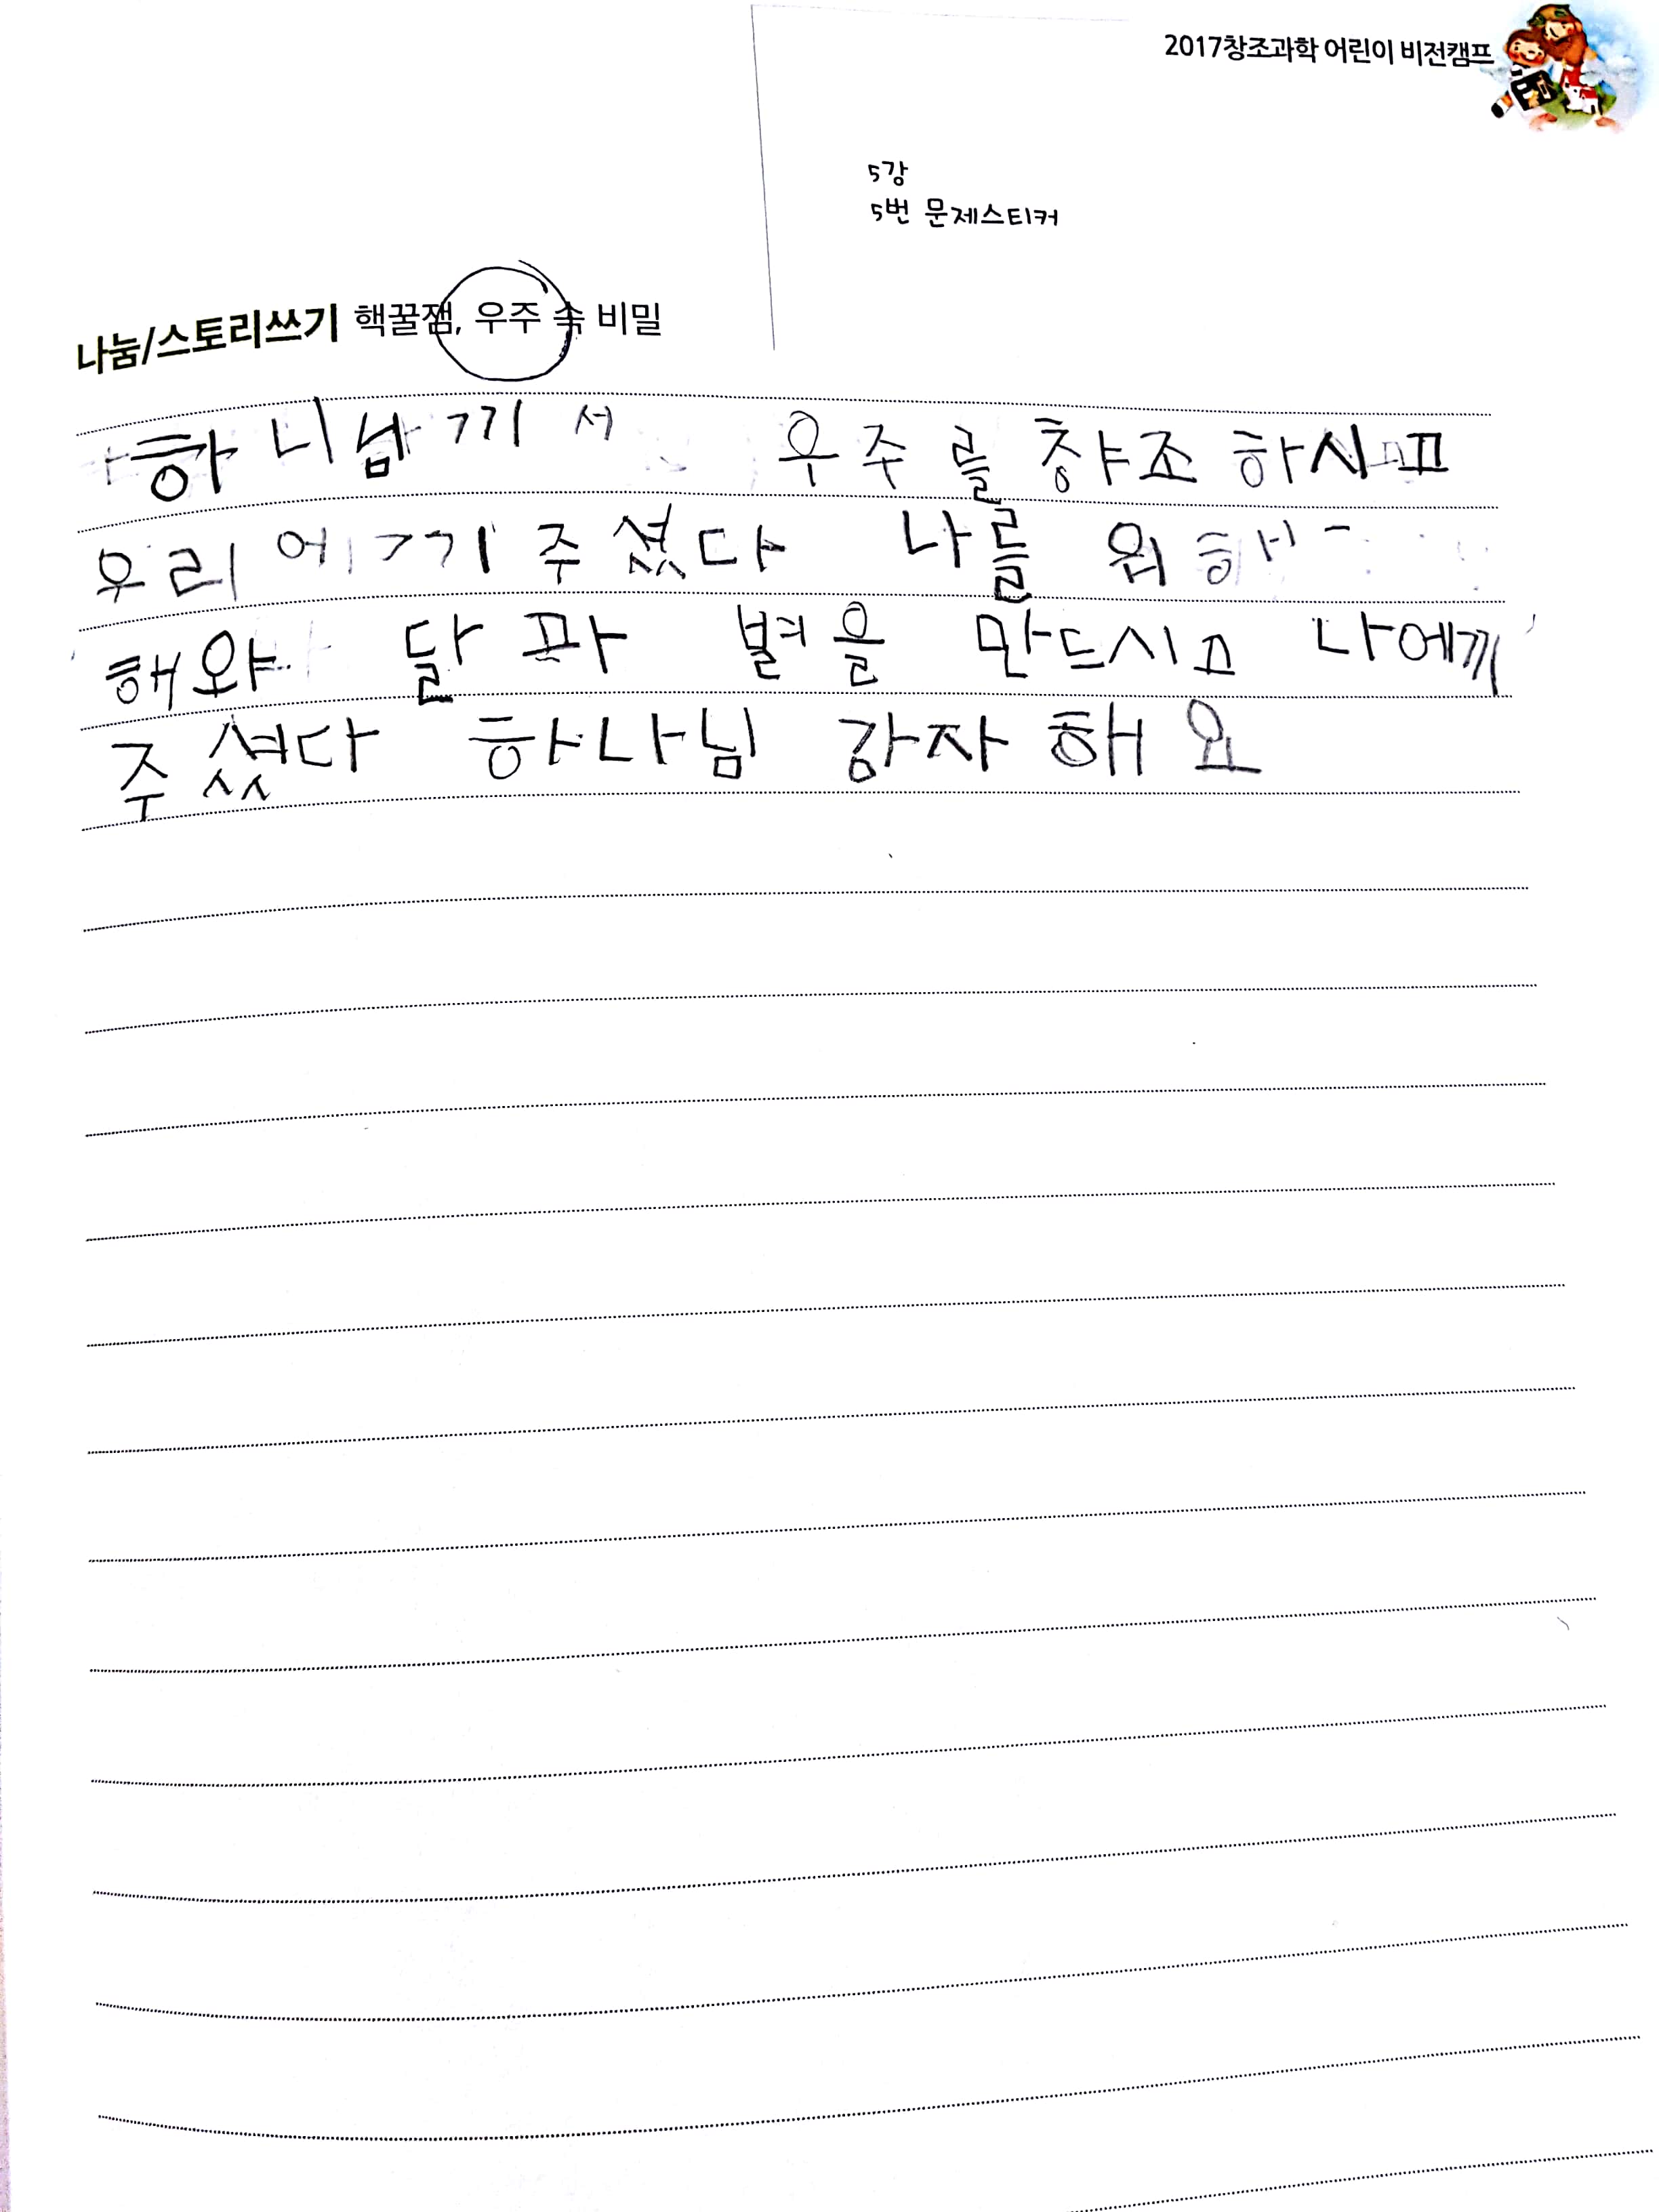 2017창조과학 어린이 비전캠프
5강
5번 문제스티커
나눔/스토리쓰기 핵꿀잼, 우주 속 비밀
우주를 창조 하시고
우리 에끼 주셨다 나를 위해
해와 달 과 별을 만드시고 나에끼
주셨다 하나님 감자 해요